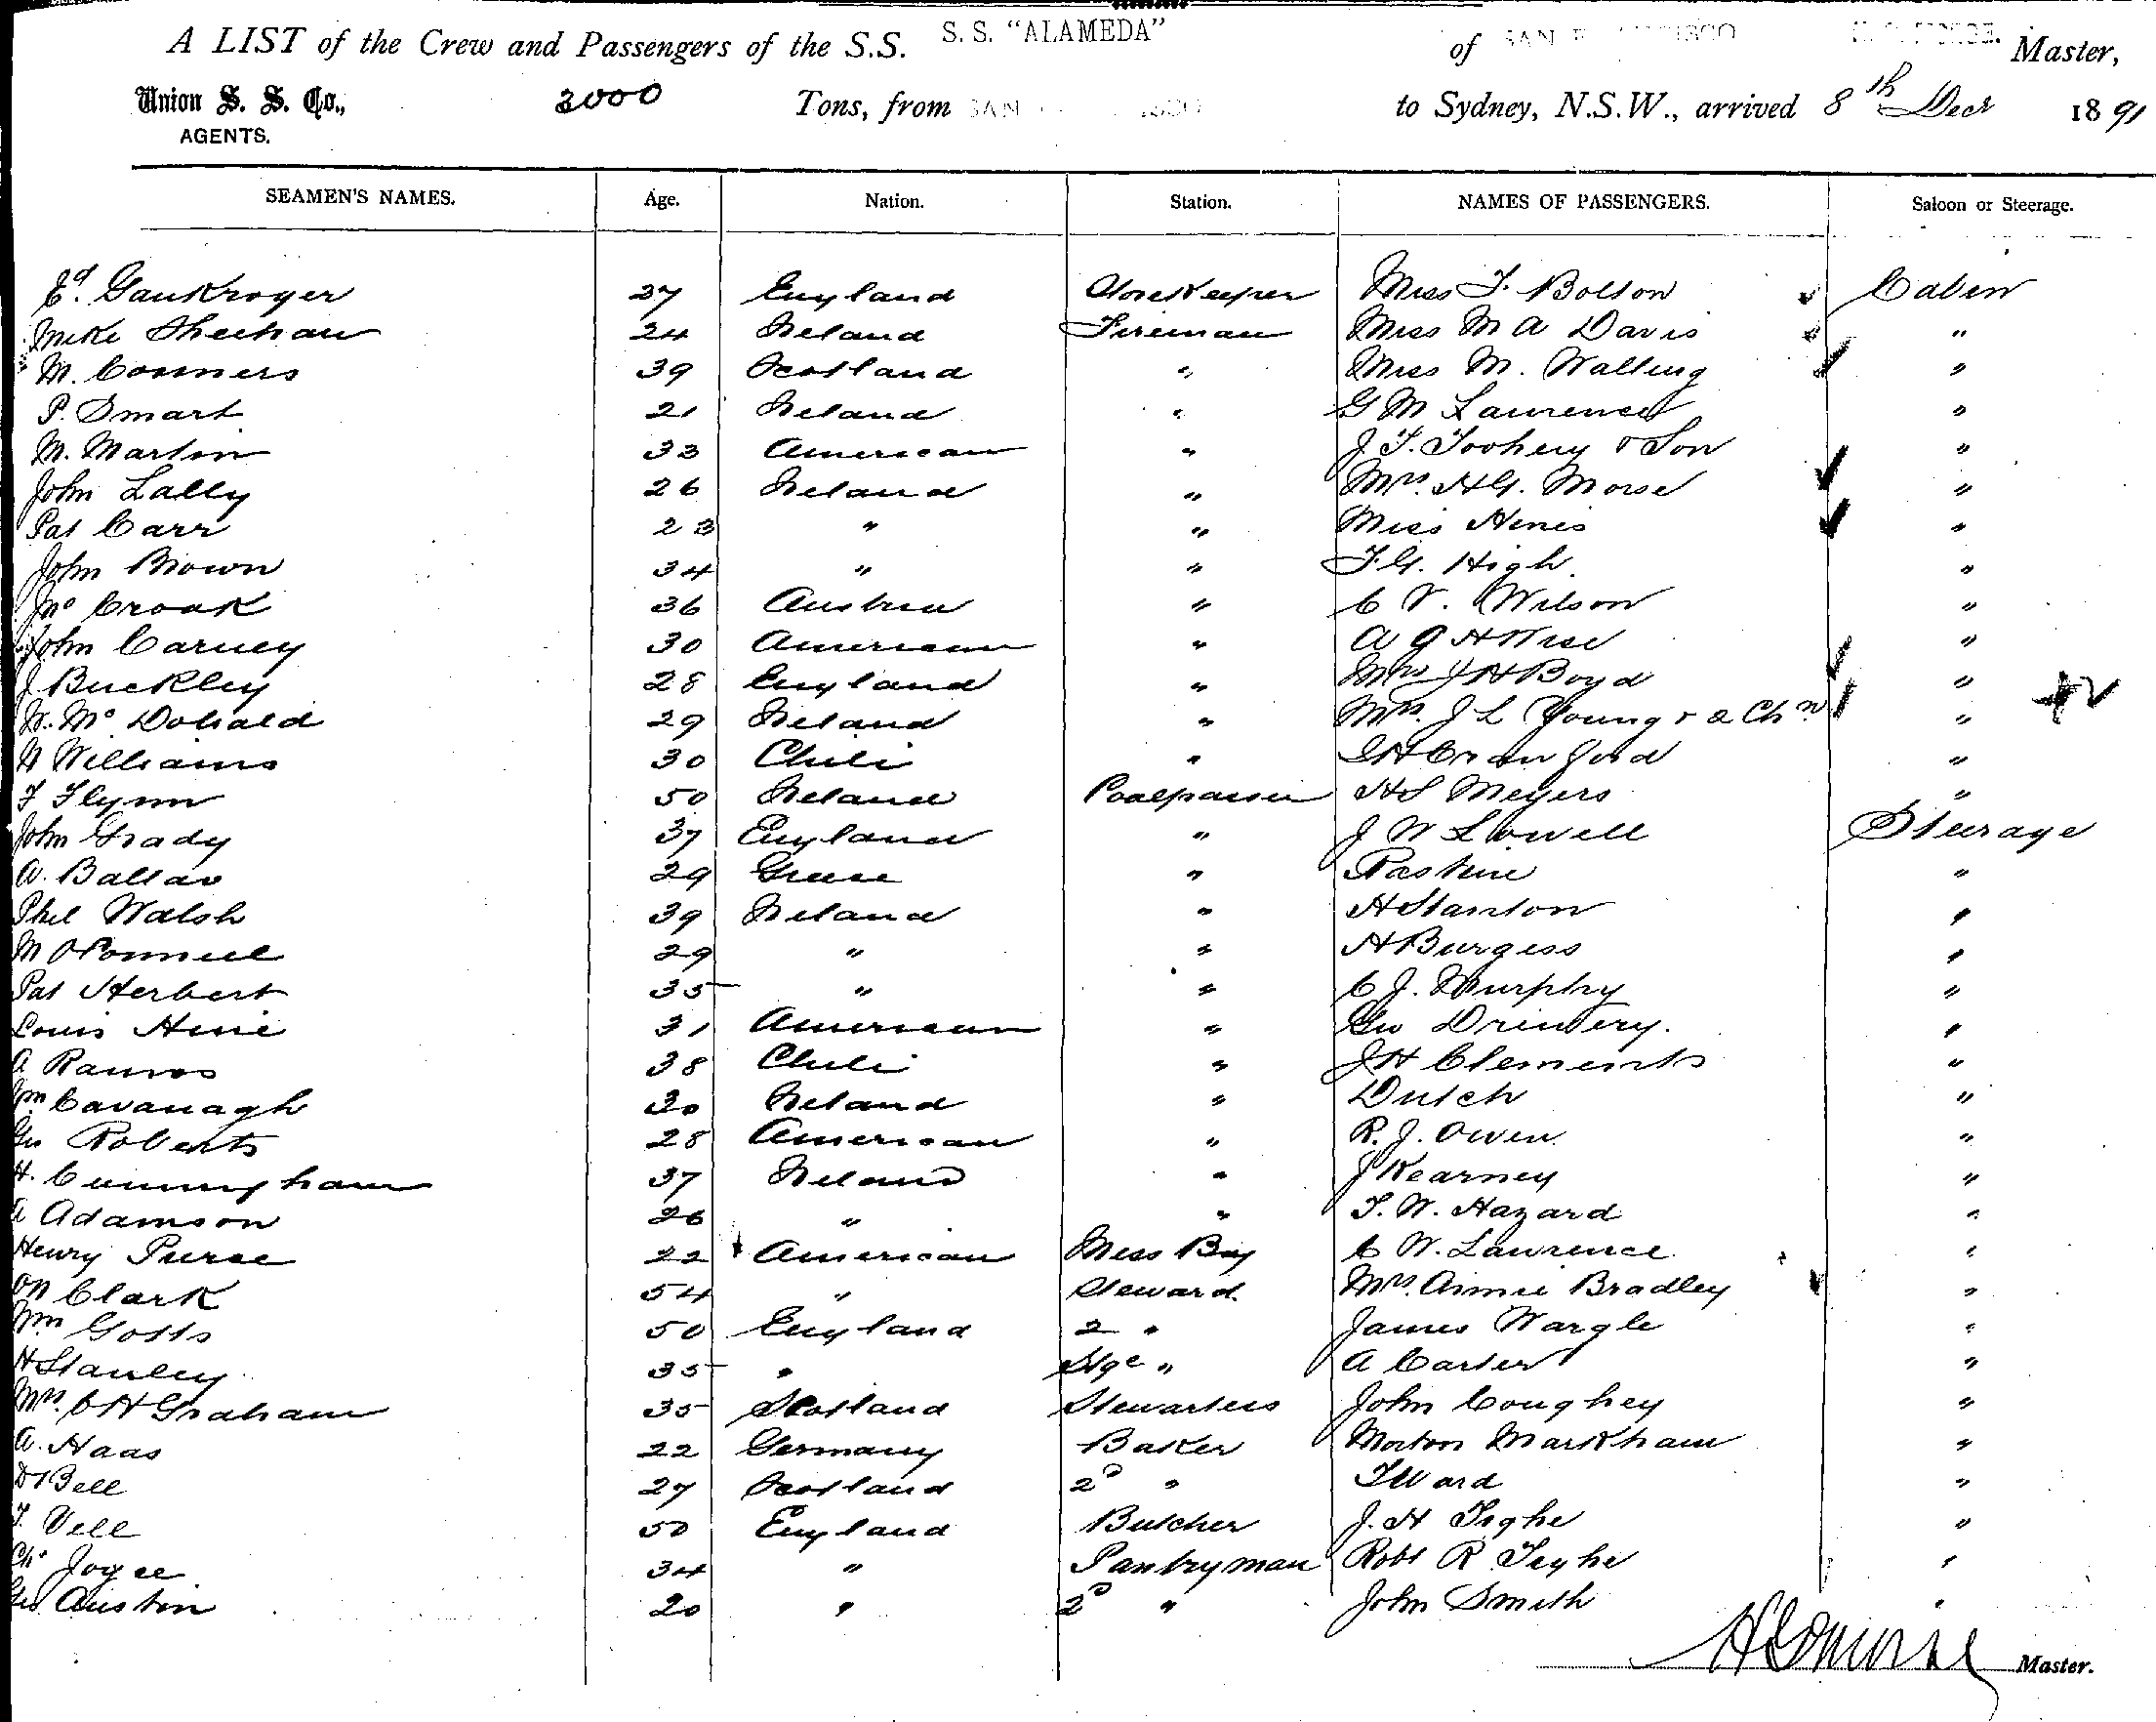 A LIST of the Crew and Passengers of the S.S. S. S. "ALAMEDA" of SAN FRANCISCO Master,
Union S. S. Co., 3000 Tons, from SAN FRANCISCO to Sydney, N.S.W., arrived 8th Decr 1891
AGENTS.
SEAMEN'S NAMES. Age. Nation. Station. NAMES OF PASSENGERS. Saloon or Steerage.
Ed. Gaukroger 27 England Storekeeper Miss F. Bolton Cabin
Mike Sheehan 24 Ireland Fireman Miss M A Davis "
M. Conners 39 Scotland " Miss M. Walling "
P. Smart 21 Ireland " G M Lawrence "
M. Martin 33 American " J. F. Toohey & Son "
John Lally 26 Ireland " Mrs. H.G. Morse "
Pat Carr 23 " " Miss Hines "
John Brown 34 " " F.G. High "
Jno Croak 36 Austria " C V. Wilson "
John Carney 30 American " A G H Wise "
J Buckley 28 England " Mrs J H Boyd "
W. Mc Donald 29 Ireland " Mrs. J L Young & 2 Chn "
N Williams 30 Chili " Crawford "
F Flynn 50 Ireland Coalpasser H S Meyers "
John Grady 37 England " J W Lowell Steerage
A. Ballao 29 Greece " Paskine "
Phil Walsh 39 Ireland " H Stanton "
M O'Connell 29 " " H Burgess "
Pat Herbert 35 " " C J. Murphy "
Louis Hine 31 American " Geo Drewery. "
A Ramos 38 Chili " J H Clements "
Wm Cavanagh 30 Ireland " Dutch "
Geo Roberts 28 American " R. J. Owen "
H. Cunningham 37 Ireland " J Kearney "
A Adamson 26 " " F. W. Hazard "
Henry Pierce 22 American Mess Boy C W. Lawrence "
Clark 54 " Steward Mrs. Aimie Bradley "
Wm Gotts 50 England 2 " James Wargle "
H Stanley 35 " Stge " A Carter "
Mrs. C H Graham 35 Scotland Stewardess John Coughey "
A. Haas 22 Germany Baker Morton Markham "
D Bell 27 Scotland 2d " T Ward "
T. Vell 50 England Butcher J. H Tighe "
Chs Joyce 34 " Pantryman Robt R Tighe "
Geo Austin 20 " 2d " John Smith "
Morse Master.